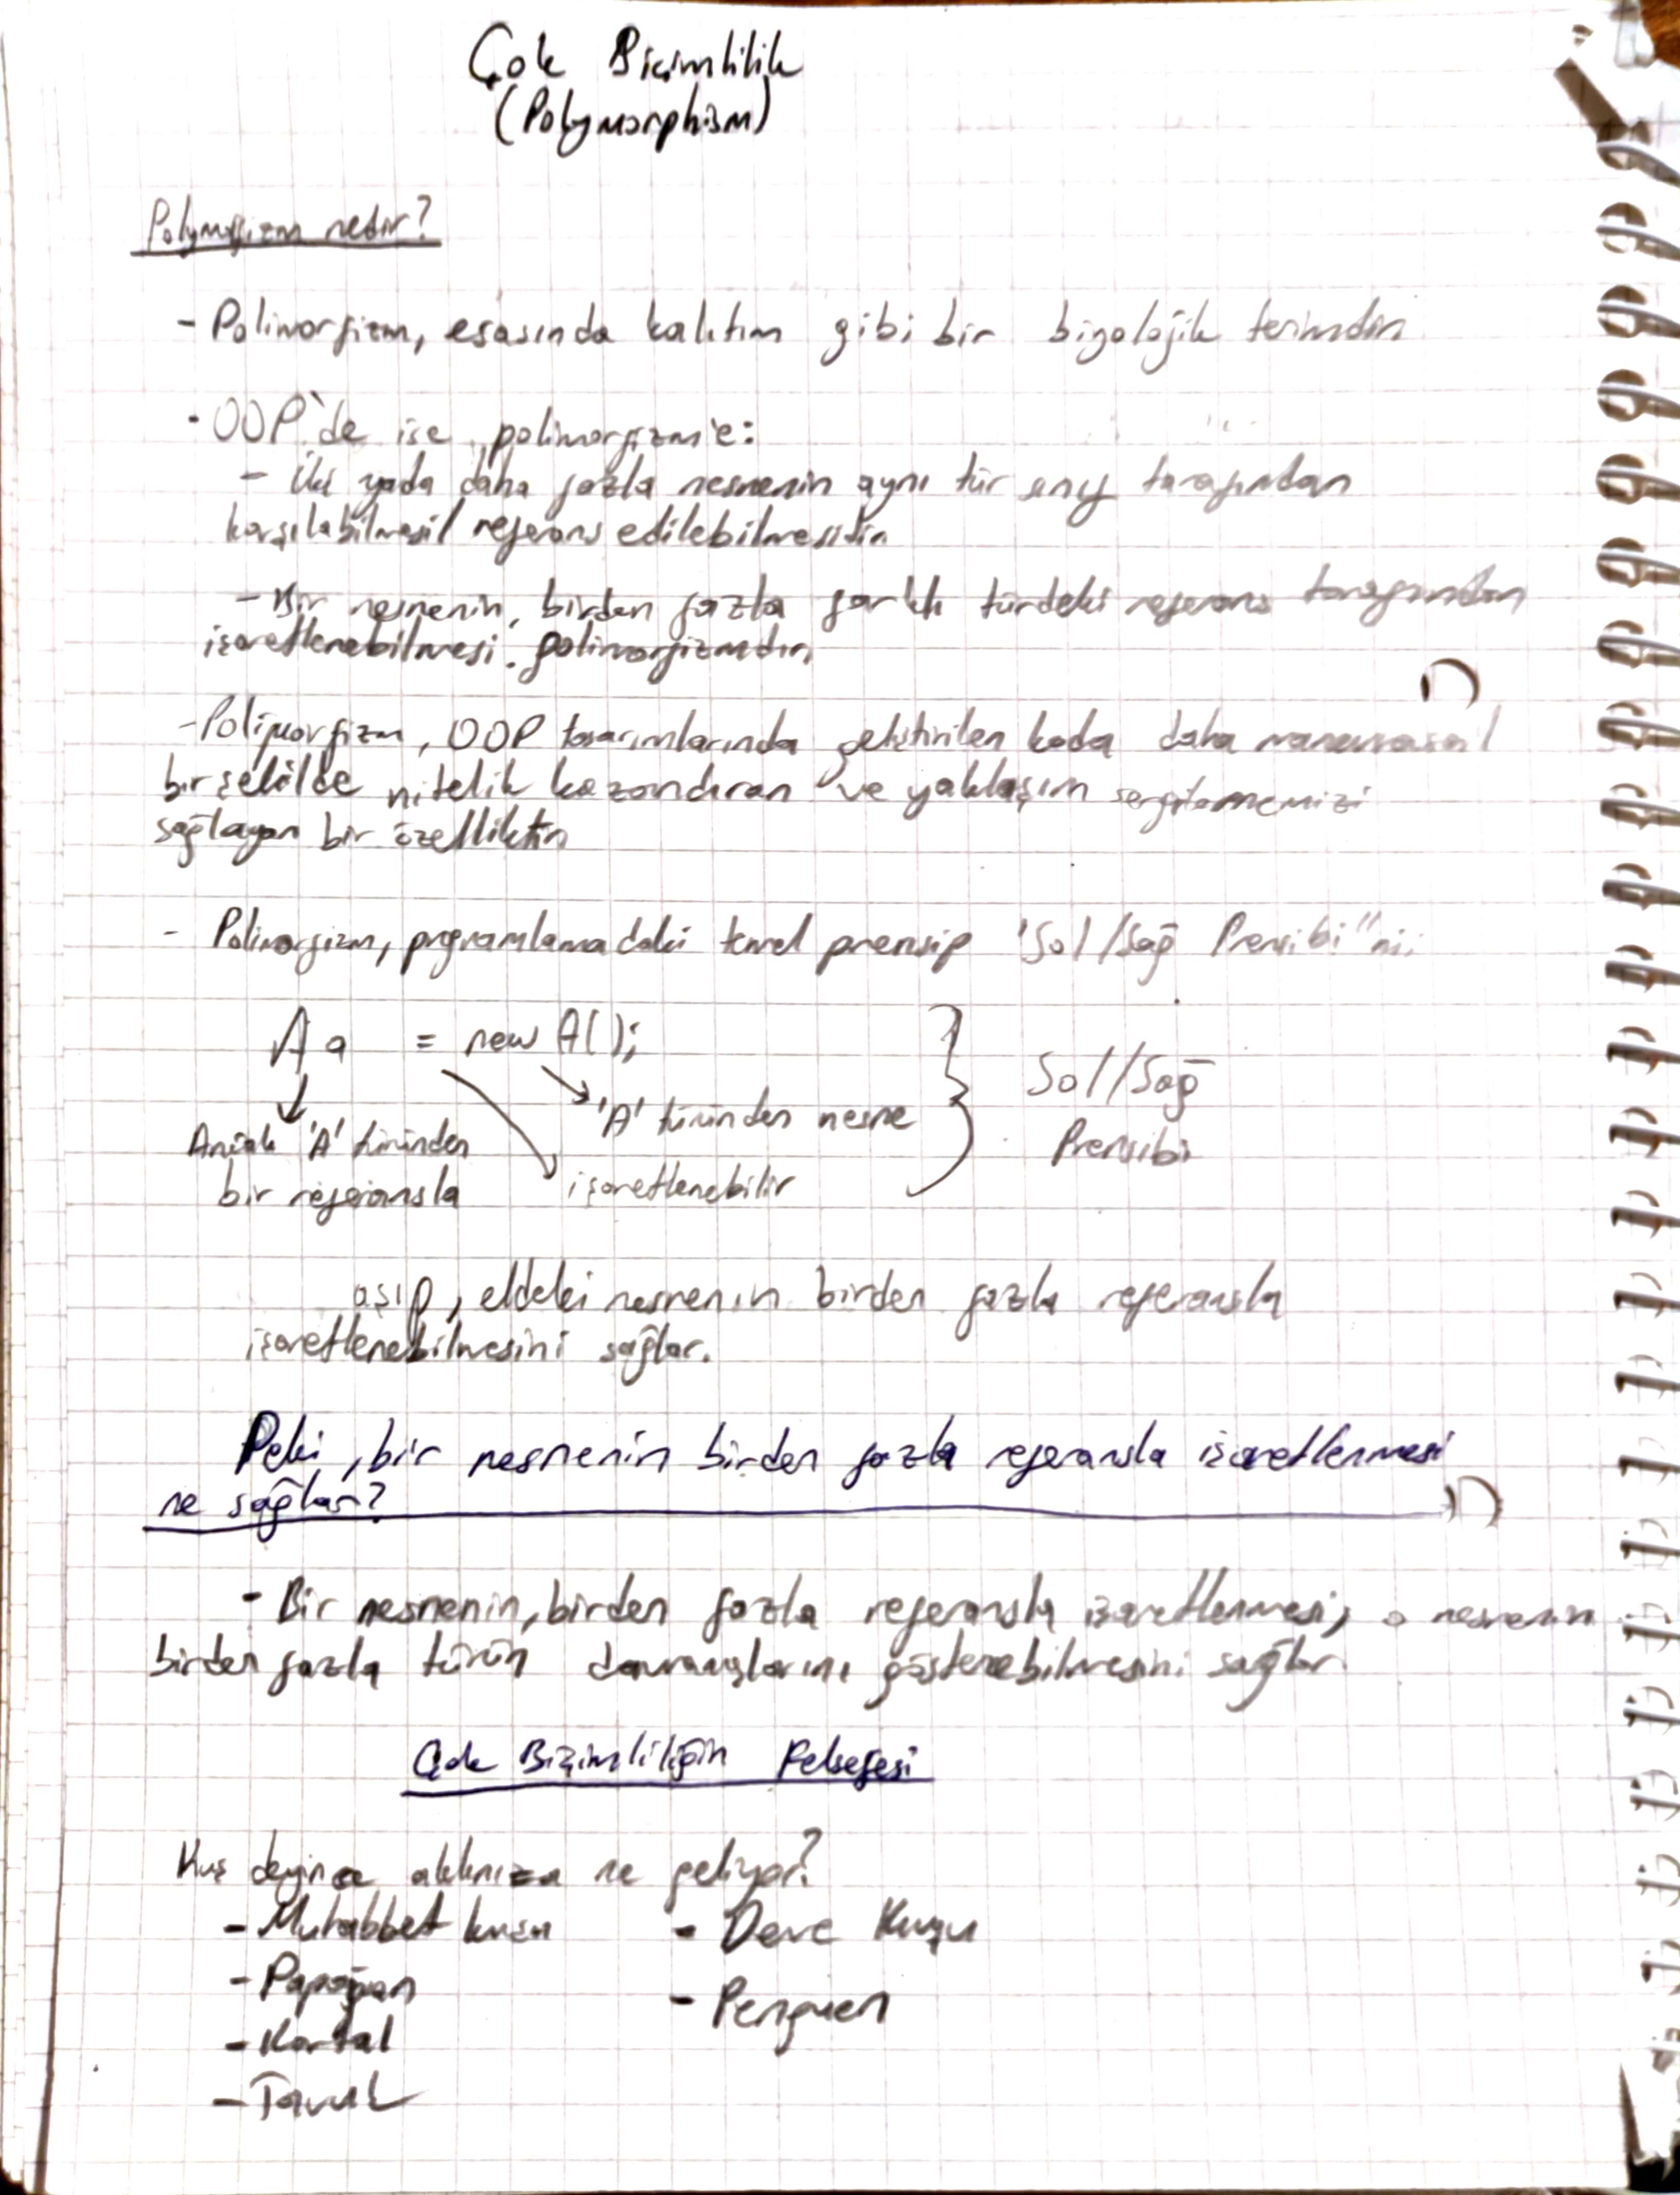 Çok Biçimlilik
(Polymorphism)
Polymorfizm nedir?
- Polimorfizm, esasında kalıtım gibi bir biyolojik terimdir.
- OOP'de ise polimorfizm'e:
- İki yada daha fazla nesnenin aynı tür sınıf tarafından
karşılabilmesi/ referans edilebilmesidir.
- Bir nesnenin, birden fazla farklı türdeki referans tarafından
işaretlenebilmesi polimorfizmdir.
- Polimorfizm, OOP tasarımlarında geliştirilen koda daha manevrasal
bir şekilde nitelik kazandıran ve yaklaşım sergilememizi
sağlayan bir özelliktir.
- Polimorfizm, programlamadaki temel prensip "Sol/Sağ Prensibi"ni;
A a = new A();
'A' türünden nesne
Sol/Sağ
Prensibi
Ancak 'A' türünden
bir referansla
işaretlenebilir
aşıp, eldeki nesnenin birden fazla referansla
işaretlenebilmesini sağlar.
Peki, bir nesnenin birden fazla referansla işaretlenmesi
ne sağlar?
- Bir nesnenin, birden fazla referansla işaretlenmesi; o nesnenin
birden fazla türün davranışlarını gösterebilmesini sağlar.
Çok Biçimliliğin Felsefesi
Kuş deyince aklınıza ne geliyor?
- Muhabbet kuşu - Deve Kuşu
- Papağan - Penguen
- Kartal
- Tavuk